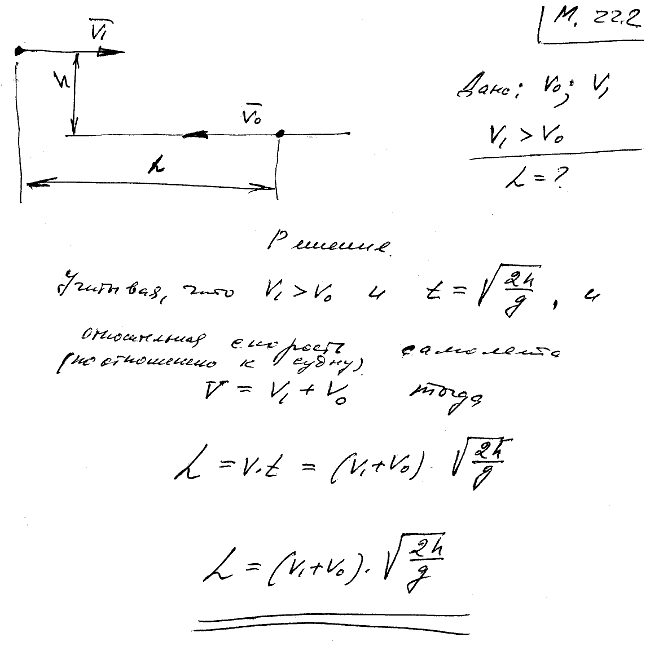 М. 22.2
V̅₁
h
V̅₀
L
Дано: V₀; V₁
V₁ > V₀
L = ?
Решение
Учитывая, что V₁ > V₀ и t = √(2h/g), и
относительная скорость самолета
(по отношению к судну)
V = V₁ + V₀ тогда
L = V·t = (V₁+V₀)·√(2h/g)
L = (V₁+V₀)·√(2h/g)